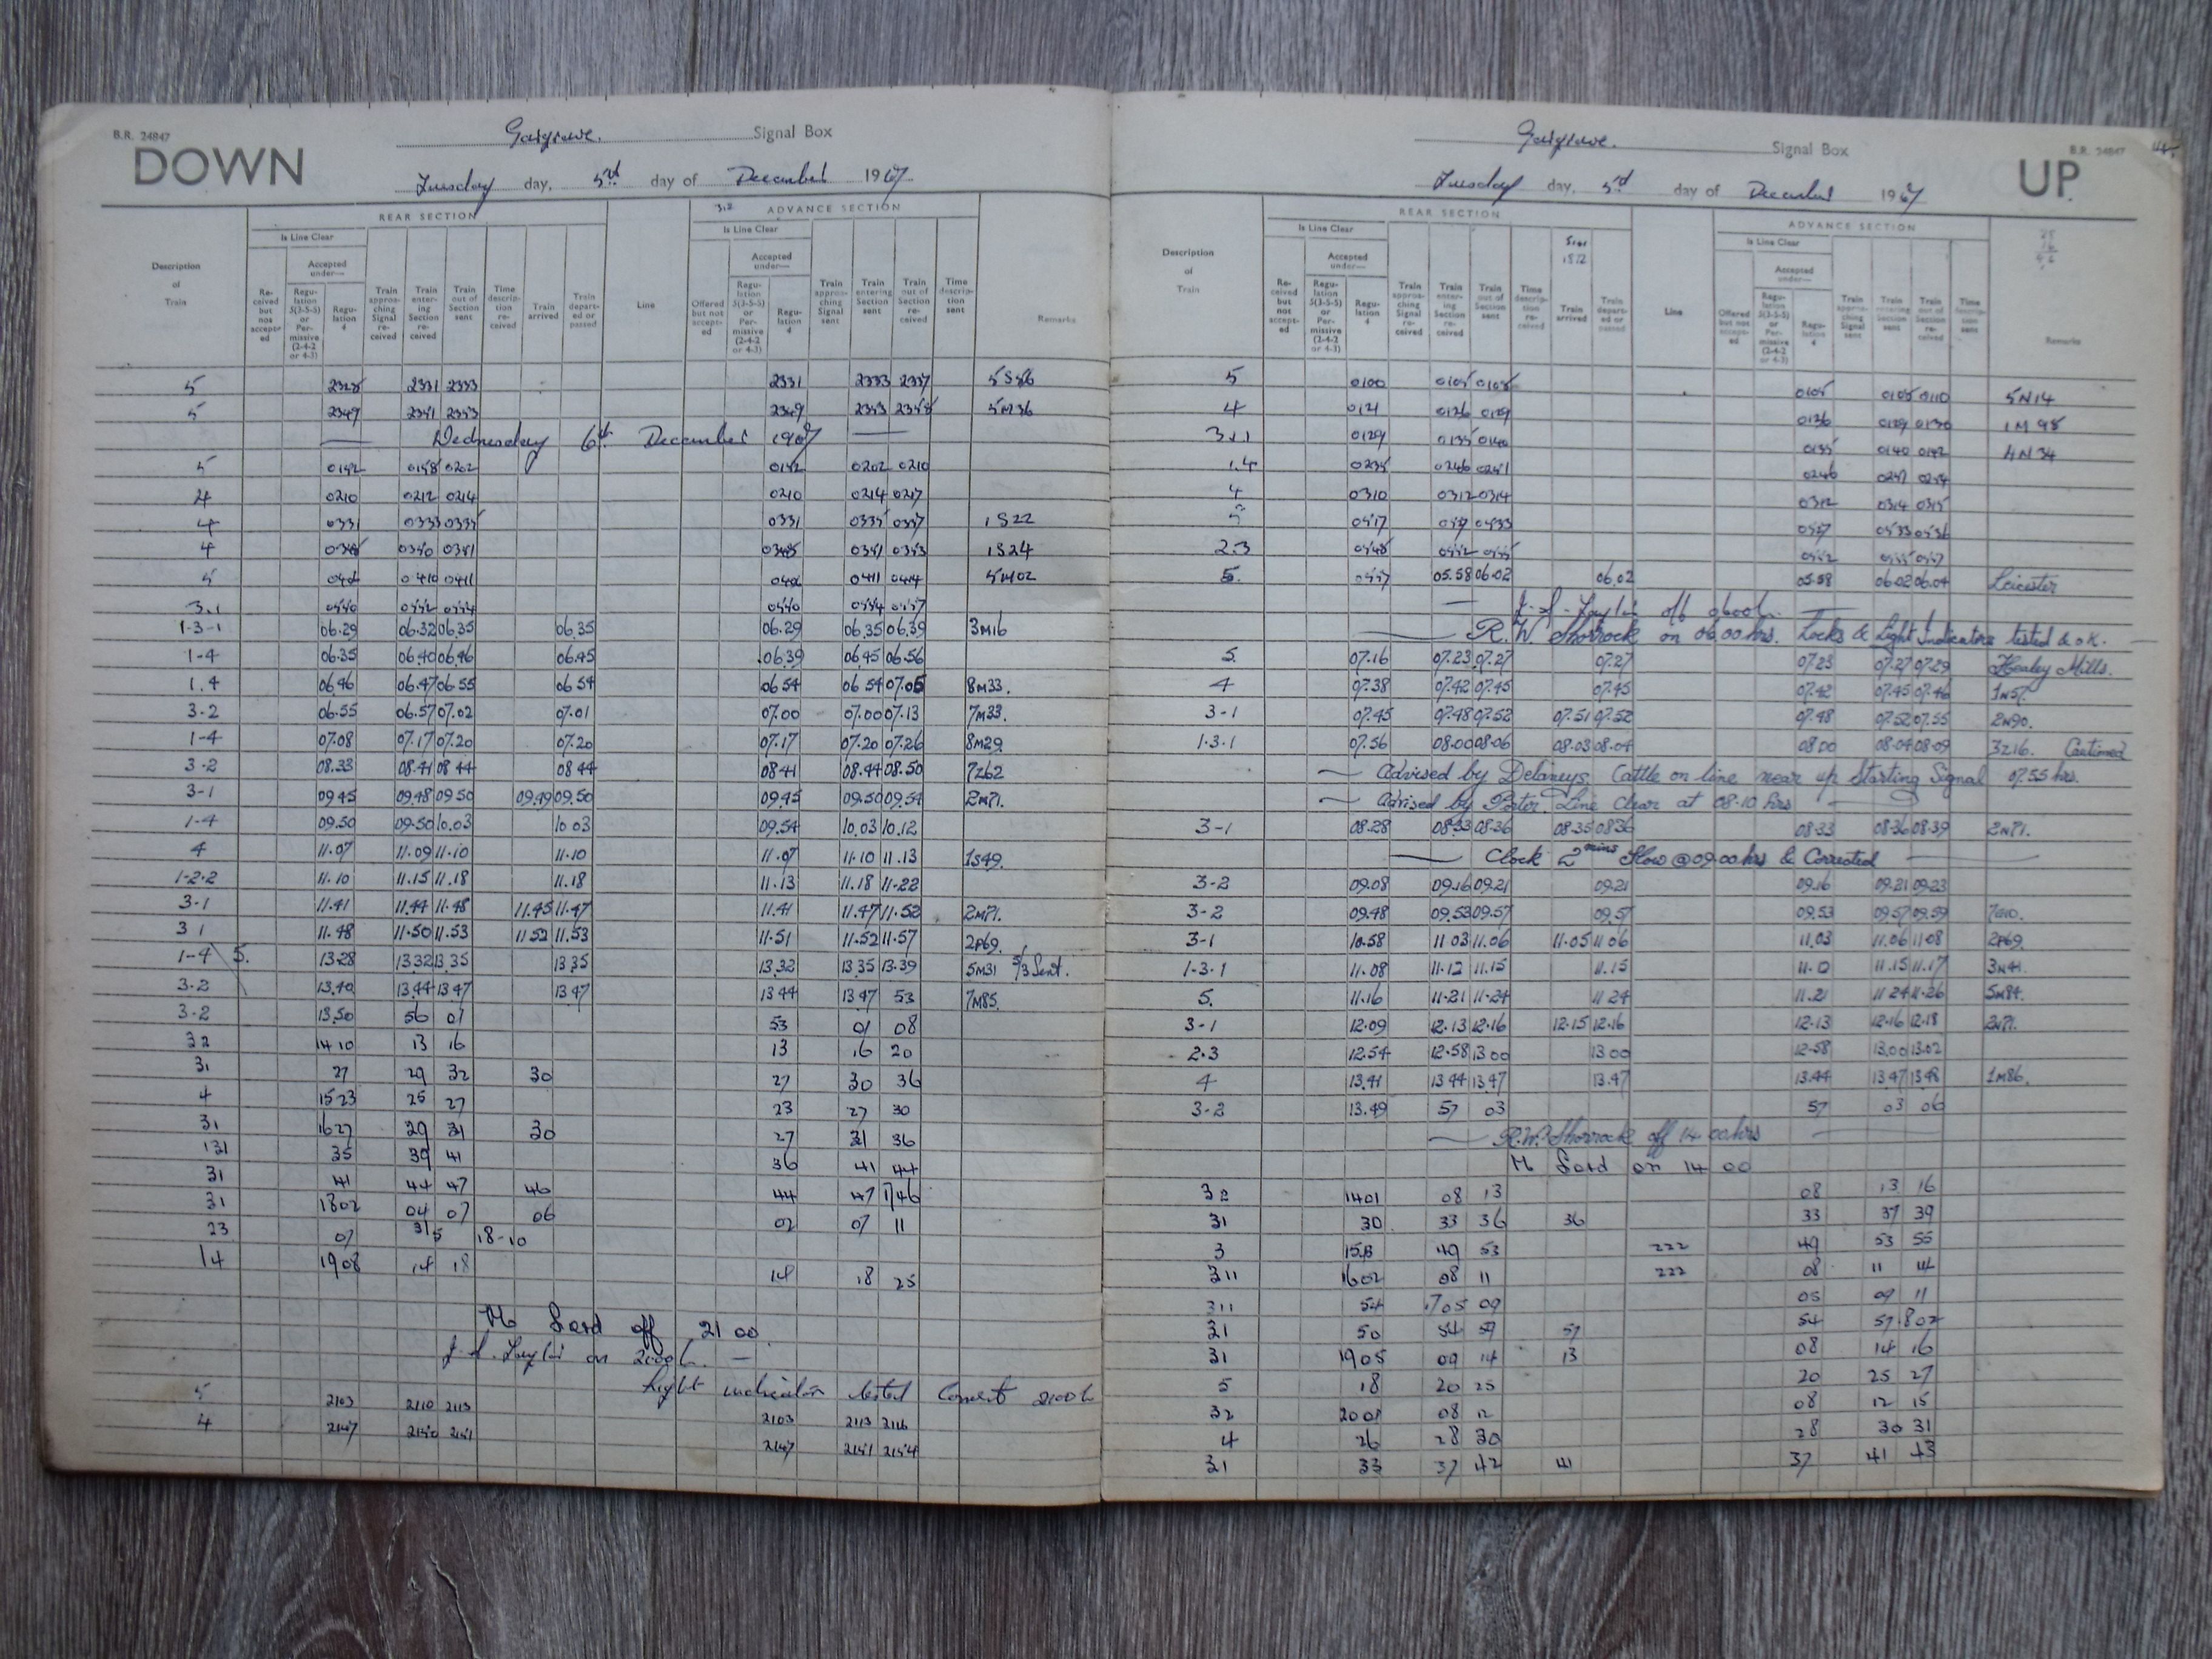 B.R. 24847
DOWN
Gargrave. Signal Box
Tuesday day, 5th day of December 1967
REAR SECTION
ADVANCE SECTION
Is Line Clear
Is Line Clear
Description of Train
Received but not accepted
Accepted under—
Regulation 5(3-5-5) or Permissive (2-4-2 or 4-3)
Regulation 4
Train approaching Signal received
Train entering Section received
Train out of Section sent
Time description received
Train arrived
Train departed or passed
Line
Offered but not accepted
Accepted under—
Regulation 5(3-5-5) or Permissive (2-4-2 or 4-3)
Regulation 4
Train approaching Signal sent
Train entering Section sent
Train out of Section received
Time description sent
Remarks
5 2328 2331 2333 2331 2333 2337 5S86
5 2349 2351 2353 2349 2353 2358 5M36
Wednesday 6th December 1967
5 0152 0158 0202 0152 0202 0210
4 0210 0212 0214 0210 0214 0217
4 0331 0333 0335 0331 0335 0337 1S22
4 0348 0350 0351 0351 0353 1S24
5 0410 0411 0411 0414 5M02
3.1 0550 0552 0554 0550 0554 0557
1-3-1 06.29 06.32 06.35 06.35 06.29 06.35 06.39 3M16
1-4 06.35 06.40 06.46 06.45 06.39 06.45 06.56
1.4 06.46 06.47 06.55 06 54 06 54 06 54 07.05 8M33.
3-2 06.55 06.57 07.02 07.01 07.00 07.00 07.13 7M33.
1-4 07.08 07.17 07.20 07.20 07.17 07.20 07.26 8M29
3-2 08.33 08.41 08 44 08 44 08 41 08.44 08.50 7Z62
3-1 09 45 09.48 09 50 09.49 09.50 09.45 09.50 09.54 2M71.
1-4 09.50 09.50 10.03 10 03 09.54 10.03 10.12
4 11.07 11.09 11.10 11.10 11.07 11.10 11.13 1S49.
1-2-2 11.10 11.15 11.18 11.18 11.13 11.18 11-22
3-1 11.41 11.44 11.48 11.45 11.47 11.41 11.47 11.52 2M71.
3 1 11.48 11.50 11.53 11 52 11.53 11.51 11.52 11.57 2P69.
1-4 5. 13.28 13.32 13.35 13.35 13.32 13.35 13.39 5M31 5/3 Sent.
3.2 13.40 13.44 13 47 13 47 13 44 13 47 53 7M85.
3-2 13.50 56 01 53 01 08
32 14 10 13 16 13 16 20
31 27 29 32 30 27 30 36
4 15 23 25 27 23 27 30
31 1627 29 31 30 27 31 36
131 35 39 41 36 41 44
31 41 44 47 46 44 47 1746
31 1802 04 07 06 02 07 11
23 07 18-10
14 1908 14 18 14 18 25
M Lord off 21 00
J. S. Taylor on
Light indicator tested Correct 2100h
5 2103 2110 2113 2103 2113 2116
4 2147 2150 2151 2147 2151 2154
B.R. 24847
UP
Gargrave. Signal Box
Tuesday day, 5th day of December 1967
REAR SECTION
ADVANCE SECTION
Is Line Clear
Is Line Clear
Description of Train
Received but not accepted
Accepted under—
Regulation 5(3-5-5) or Permissive (2-4-2 or 4-3)
Regulation 4
Train approaching Signal received
Train entering Section received
Train out of Section sent
Time description received
Train arrived
Train departed or passed
Line
Offered but not accepted
Accepted under—
Regulation 5(3-5-5) or Permissive (2-4-2 or 4-3)
Regulation 4
Train approaching Signal sent
Train entering Section sent
Train out of Section received
Time description sent
Remarks
5 0100 0105 0108 0105 0108 0110 5N14
4 0121 0126 0129 0126 0129 0130 1M98
3.1.1 0129 0135 0140 0135 0140 0142 4N34
1.4 0235 0246 0251 0246 0251 0254
4 0310 0312 0314 0312 0314 0315
5 0517 0533 0533 0536
2.3 0548 0552 0555 0552 0555 0557
5. 0557 05.58 06.02 06.02 05.58 06.02 06.04 Leicester
J. S. Taylor off 0600h
R.W. Shorrock on 06.00 hrs. Locks & Light Indicators tested & OK.
5. 07.16 07.23 07.27 07.27 07.23 07.27 07.29 Healey Mills.
4 07.38 07.42 07.45 07.45 07.42 07.45 07.46 1M57.
3-1 07.45 07.48 07.52 07.51 07.52 07.48 07.52 07.55 2N90.
1.3.1 07.56 08.00 08.06 08.03 08.04 08.00 08.04 08.09 3Z16. Cautioned
Advised by Delaneys, Cattle on line near up Starting Signal 07.55 hrs.
Advised by Porter, Line Clear at 08.10 hrs
3-1 08.28 08.33 08.36 08.35 08 36 08.33 08.36 08.39 2N71.
Clock 2 mins Slow @ 09.00 hrs & Corrected
3-2 09.08 09.16 09.21 09.21 09.16 09.21 09.23
3-2 09.48 09.53 09.57 09.57 09.53 09.57 09.59
3-1 10.58 11 03 11.06 11.05 11 06 11.03 11.06 11 08 2P69.
1.3.1 11.08 11.12 11.15 11.15 11.15 11.17 3N41.
5. 11.16 11.21 11.24 11 24 11.21 11 24 11.26 5M84.
3-1 12.09 12.13 12.16 12.15 12.16 12.13 12.16 12.18 2N71.
2.3 12.54 12.58 13 00 13 00 12-58 13.00 13.02
4 13.41 13 44 13.47 13.47 13.44 13 47 13 48 1M86.
3-2 13.49 57 03 57 03 06
R.W. Shorrock off 14 00 hrs
M Lord on 14 00
32 1401 08 13 08 13 16
31 30 33 36 36 33 37 39
3 49 53 222 49 53 55
311 1602 08 11 222 08 11 14
311 54 1705 09 05 09 11
31 50 54 57 57 54 57 1802
31 1905 09 14 13 08 14 16
5 18 20 25 20 25 27
32 2001 08 12 08 12 15
4 26 28 30 28 30 31
31 33 37 42 41 37 41 43